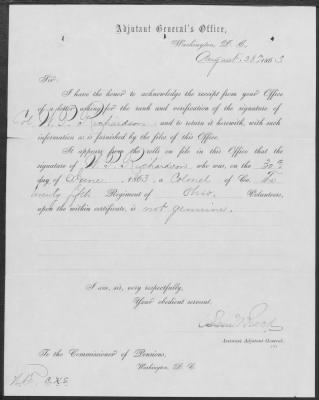 Adjutant General's Office,
Washington, D. C.
August 28th 1863
Sir:
I have the honor to acknowledge the receipt from your Office
of a letter asking for the rank and verification of the signature of
Col W. P. Richardson, and to return it herewith, with such
information as is furnished by the files of this Office.
It appears from the rolls on file in this Office that the
signature of W. P. Richardson who was, on the 30th
day of June, 1863, a Colonel of Co.
twenty fifth Regiment of Ohio Volunteers,
upon the within certificate, is not genuine.
I am, sir, very respectfully,
Your obedient servant,
Assistant Adjutant General.
To the Commissioner of Pensions,
Washington, D. C.